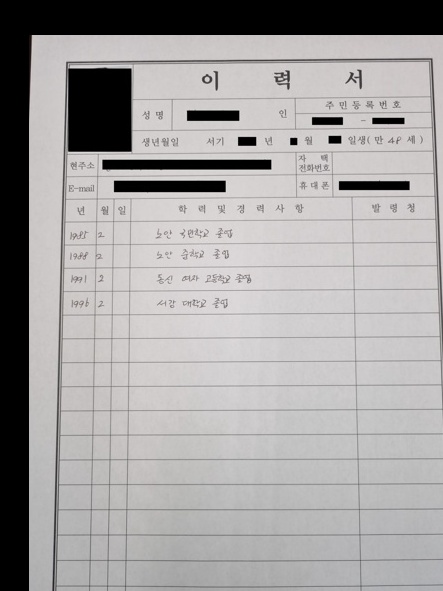 이 력 서
성 명 인 주 민 등 록 번 호
–
생년월일 서기 년 월 일생( 만 48 세 )
현주소 자 택 전화번호
E-mail 휴 대 폰
년 월 일 학 력 및 경 력 사 항 발 령 청
1985 2 노안 국민학교 졸업
1988 2 노안 중학교 졸업
1991 2 동신 여자 고등학교 졸업
1996 2 서강 대학교 졸업